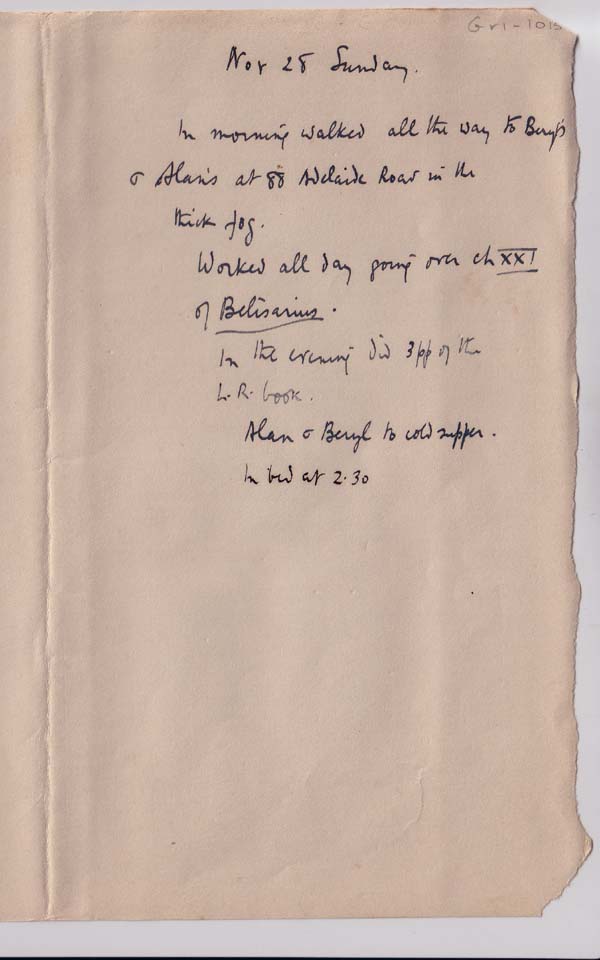 Gri-101b
Nov 28 Sunday.
In morning walked all the way to Beryl's
& Alan's at 88 Adelaide Road in the
thick fog.
Worked all day going over ch XXI
of Belisarius.
In the evening did 3pp of the
L.R. book.
Alan & Beryl to cold supper.
In bed at 2.30